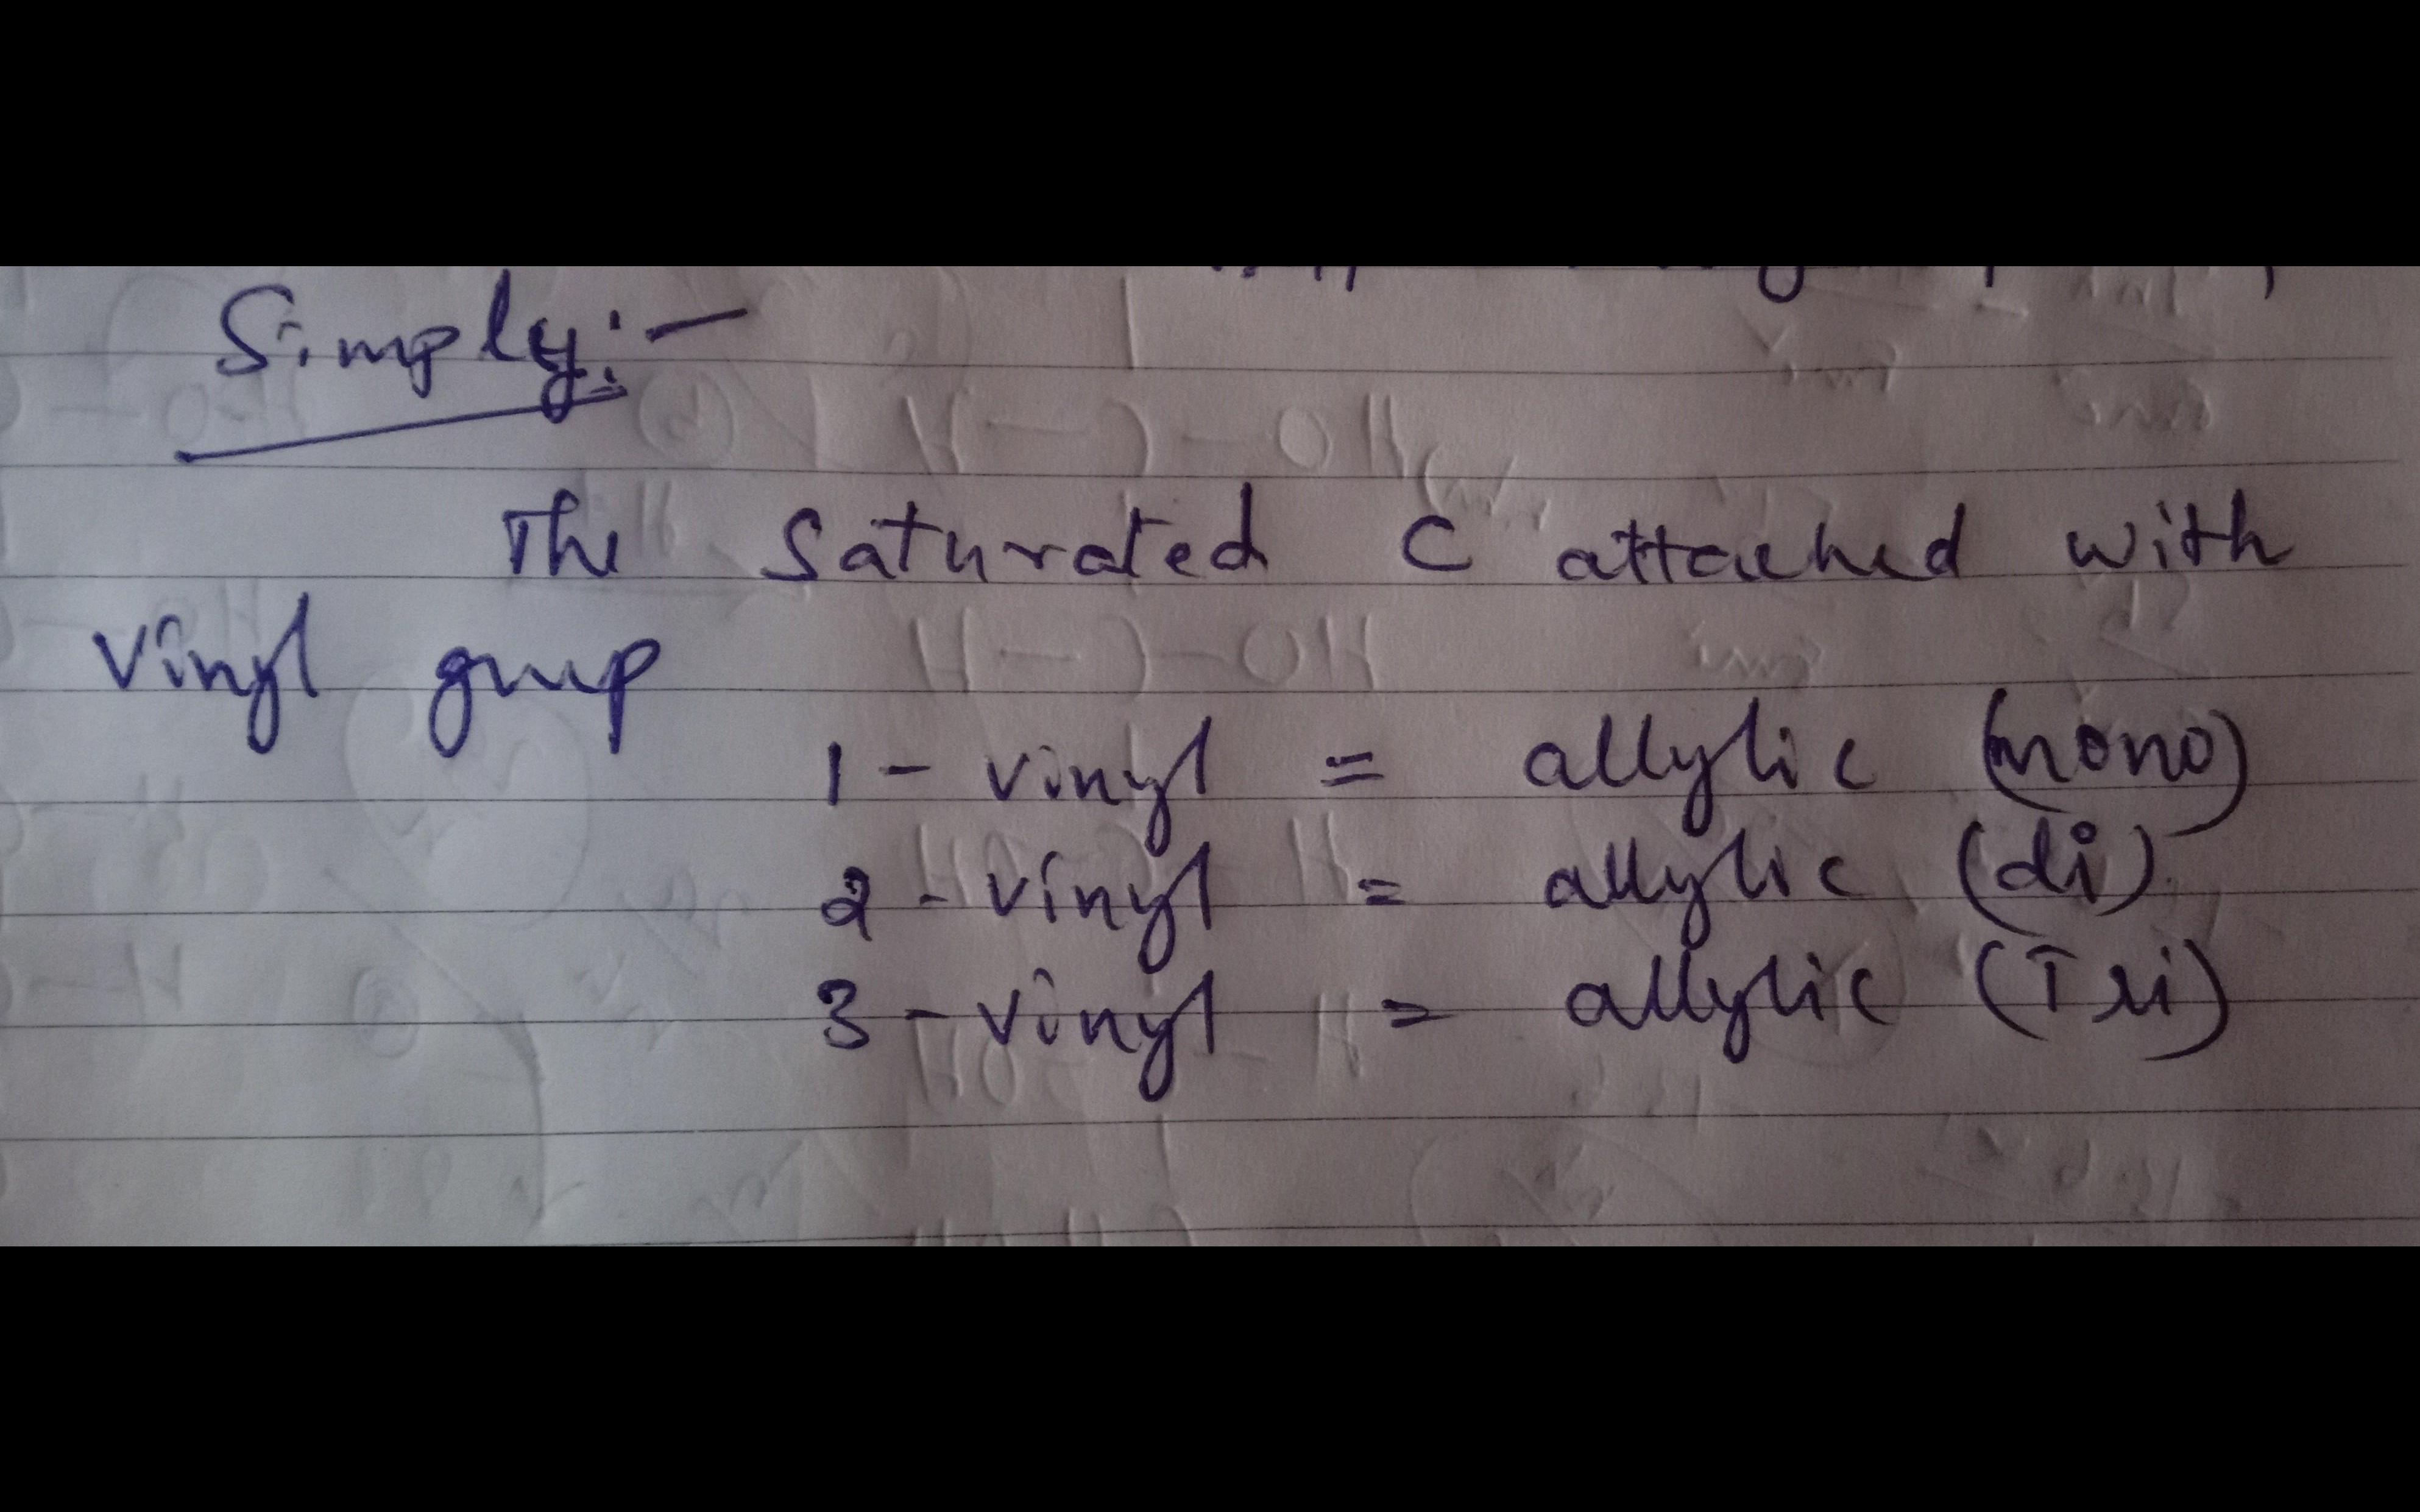 Simply:-
The Saturated C attached with
Vinyl group
1 - vinyl = allylic (mono)
2 - vinyl = allylic (di)
3 - vinyl = allylic (Tri)